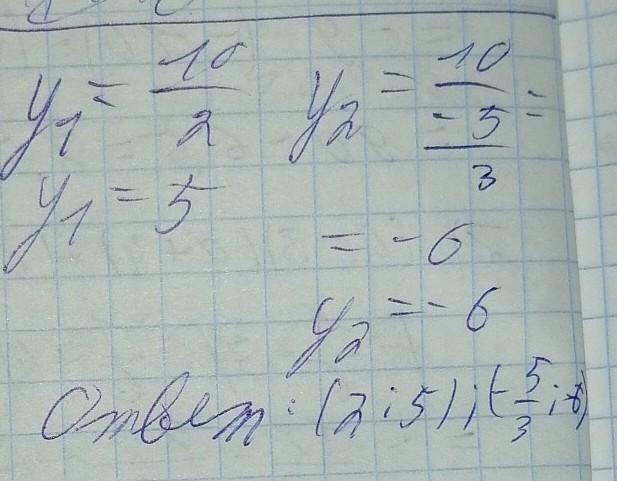 y₁ = 10/2 y₂ = 10/(-5/3) =
y₁ = 5
= -6
y₂ = -6
Ответ: (2;5); (-5/3;-6)